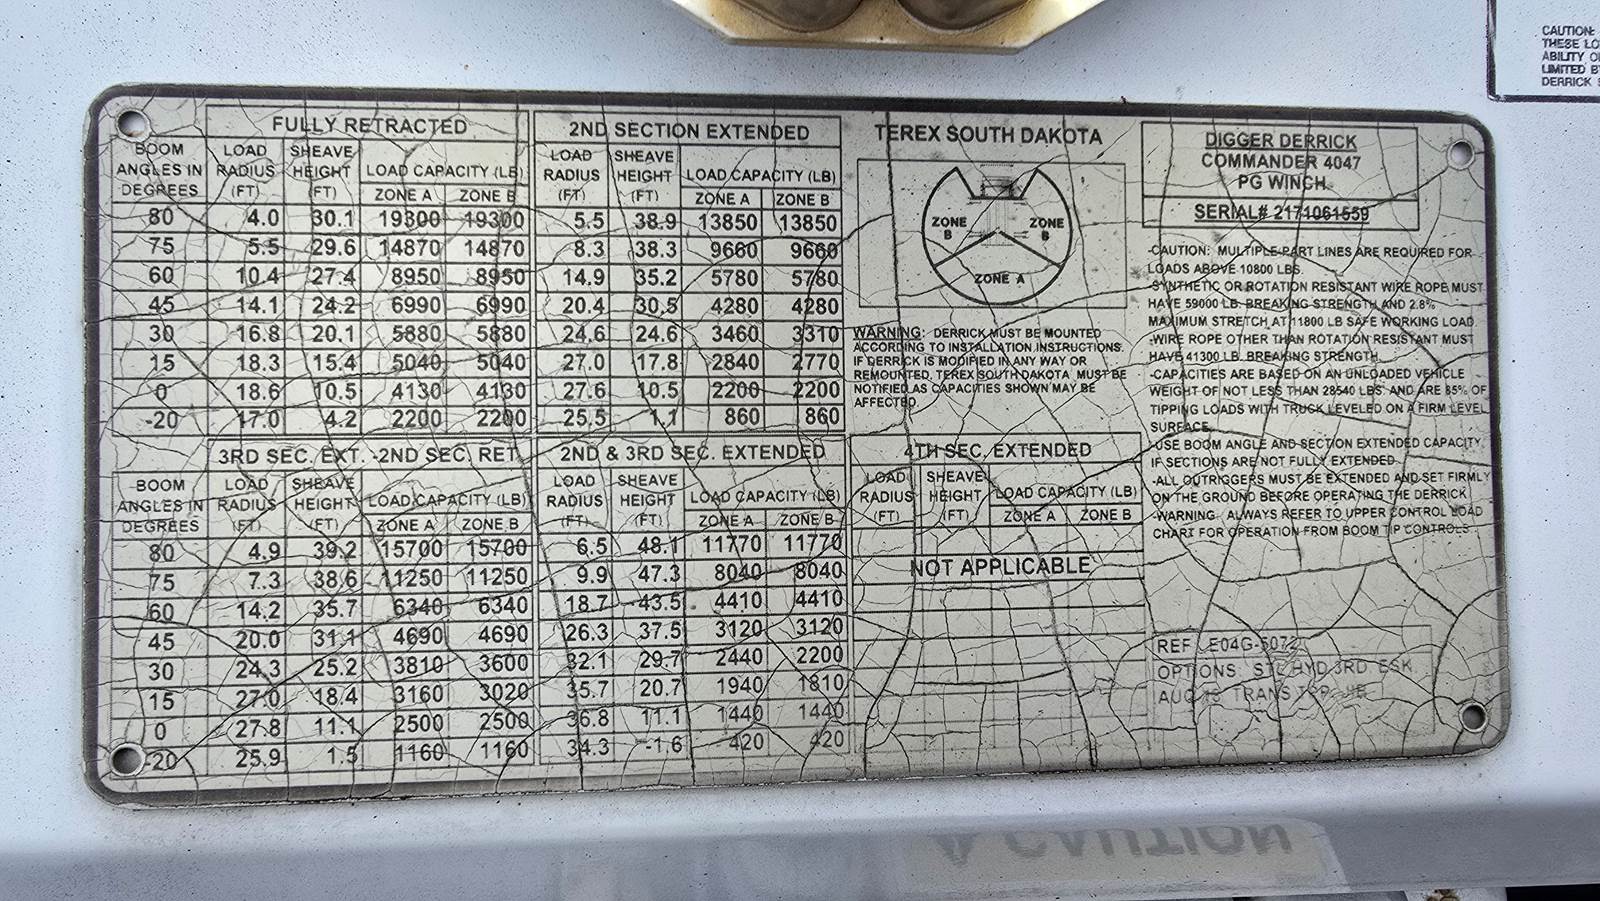 CAUTION:
THESE LO
ABILITY O
LIMITED B
DERRICK
FULLY RETRACTED
BOOM ANGLES IN DEGREES LOAD RADIUS (FT) SHEAVE HEIGHT (FT) LOAD CAPACITY (LB) ZONE A ZONE B
80 4.0 30.1 19300 19300
75 5.5 29.6 14870 14870
60 10.4 27.4 8950 8950
45 14.1 24.2 6990 6990
30 16.8 20.1 5880 5880
15 18.3 15.4 5040 5040
0 18.6 10.5 4130 4130
-20 17.0 4.2 2200 2200
2ND SECTION EXTENDED
LOAD RADIUS (FT) SHEAVE HEIGHT (FT) LOAD CAPACITY (LB) ZONE A ZONE B
5.5 38.9 13850 13850
8.3 38.3 9660 9660
14.9 35.2 5780 5780
20.4 30.5 4280 4280
24.6 24.6 3460 3310
27.0 17.8 2840 2770
27.6 10.5 2200 2200
25.5 1.1 860 860
TEREX SOUTH DAKOTA
ZONE B
ZONE B
ZONE A
WARNING: DERRICK MUST BE MOUNTED
ACCORDING TO INSTALLATION INSTRUCTIONS.
IF DERRICK IS MODIFIED IN ANY WAY OR
REMOUNTED, TEREX SOUTH DAKOTA MUST BE
NOTIFIED AS CAPACITIES SHOWN MAY BE
AFFECTED.
DIGGER DERRICK
COMMANDER 4047
PG WINCH
SERIAL# 2171061559
-CAUTION: MULTIPLE PART LINES ARE REQUIRED FOR
LOADS ABOVE 10800 LBS.
-SYNTHETIC OR ROTATION RESISTANT WIRE ROPE MUST
HAVE 59000 LB. BREAKING STRENGTH AND 2.8%
MAXIMUM STRETCH AT 11800 LB SAFE WORKING LOAD.
-WIRE ROPE OTHER THAN ROTATION RESISTANT MUST
HAVE 41300 LB. BREAKING STRENGTH.
-CAPACITIES ARE BASED ON AN UNLOADED VEHICLE
WEIGHT OF NOT LESS THAN 28540 LBS. AND ARE 85% OF
TIPPING LOADS WITH TRUCK LEVELED ON A FIRM LEVEL
SURFACE.
-USE BOOM ANGLE AND SECTION EXTENDED CAPACITY
IF SECTIONS ARE NOT FULLY EXTENDED.
-ALL OUTRIGGERS MUST BE EXTENDED AND SET FIRMLY
ON THE GROUND BEFORE OPERATING THE DERRICK
-WARNING: ALWAYS REFER TO UPPER CONTROL LOAD
CHART FOR OPERATION FROM BOOM TIP CONTROLS.
3RD SEC. EXT. -2ND SEC. RET.
BOOM ANGLES IN DEGREES LOAD RADIUS (FT) SHEAVE HEIGHT (FT) LOAD CAPACITY (LB) ZONE A ZONE B
80 4.9 39.2 15700 15700
75 7.3 38.6 11250 11250
60 14.2 35.7 6340 6340
45 20.0 31.1 4690 4690
30 24.3 25.2 3810 3600
15 27.0 18.4 3160 3020
0 27.8 11.1 2500 2500
-20 25.9 1.5 1160 1160
2ND & 3RD SEC. EXTENDED
LOAD RADIUS (FT) SHEAVE HEIGHT (FT) LOAD CAPACITY (LB) ZONE A ZONE B
6.5 48.1 11770 11770
9.9 47.3 8040 8040
18.7 43.5 4410 4410
26.3 37.5 3120 3120
32.1 29.7 2440 2200
35.7 20.7 1940 1810
36.8 11.1 1440 1440
34.3 -1.6 420 420
4TH SEC. EXTENDED
LOAD RADIUS (FT) SHEAVE HEIGHT (FT) LOAD CAPACITY (LB) ZONE A ZONE B
NOT APPLICABLE
REF E04G-5072
OPTIONS: STL HYD 3RD ESK
AUG TRANS TRP
CAUTION